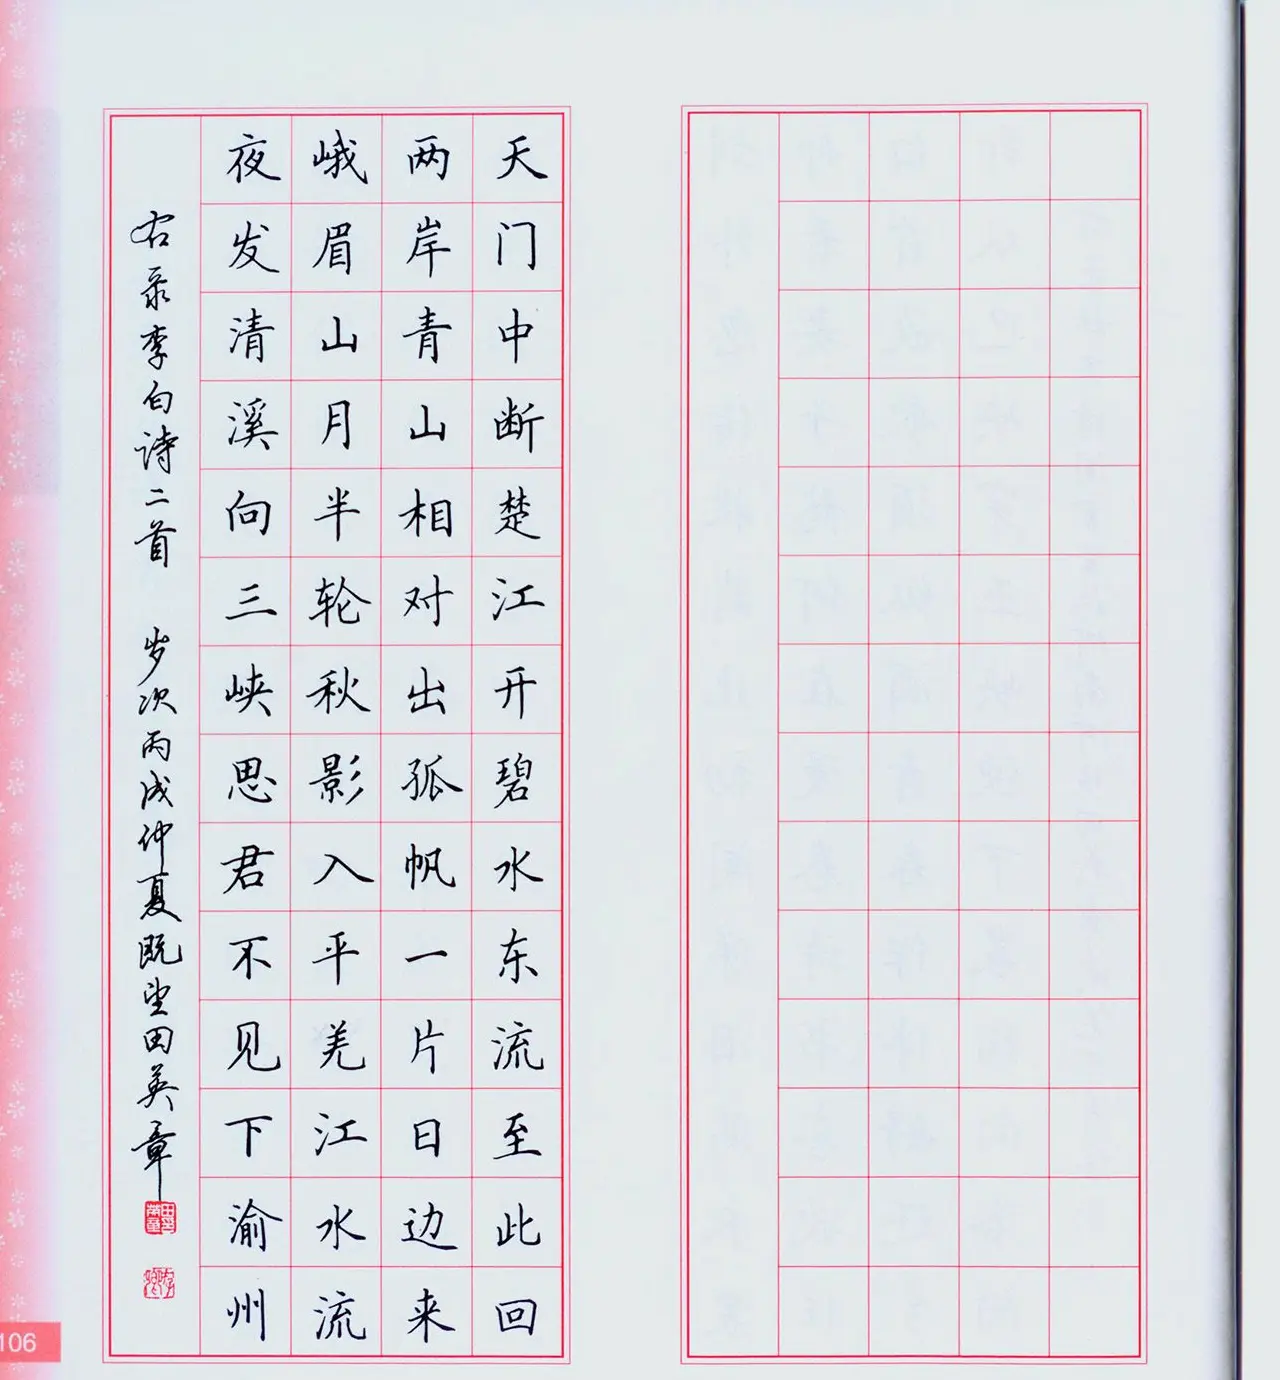 天门中断楚江开碧水东流至此回
两岸青山相对出孤帆一片日边来
峨眉山月半轮秋影入平羌江水流
夜发清溪向三峡思君不见下渝州
右录李白诗二首 岁次丙戌仲夏既望田英章
106